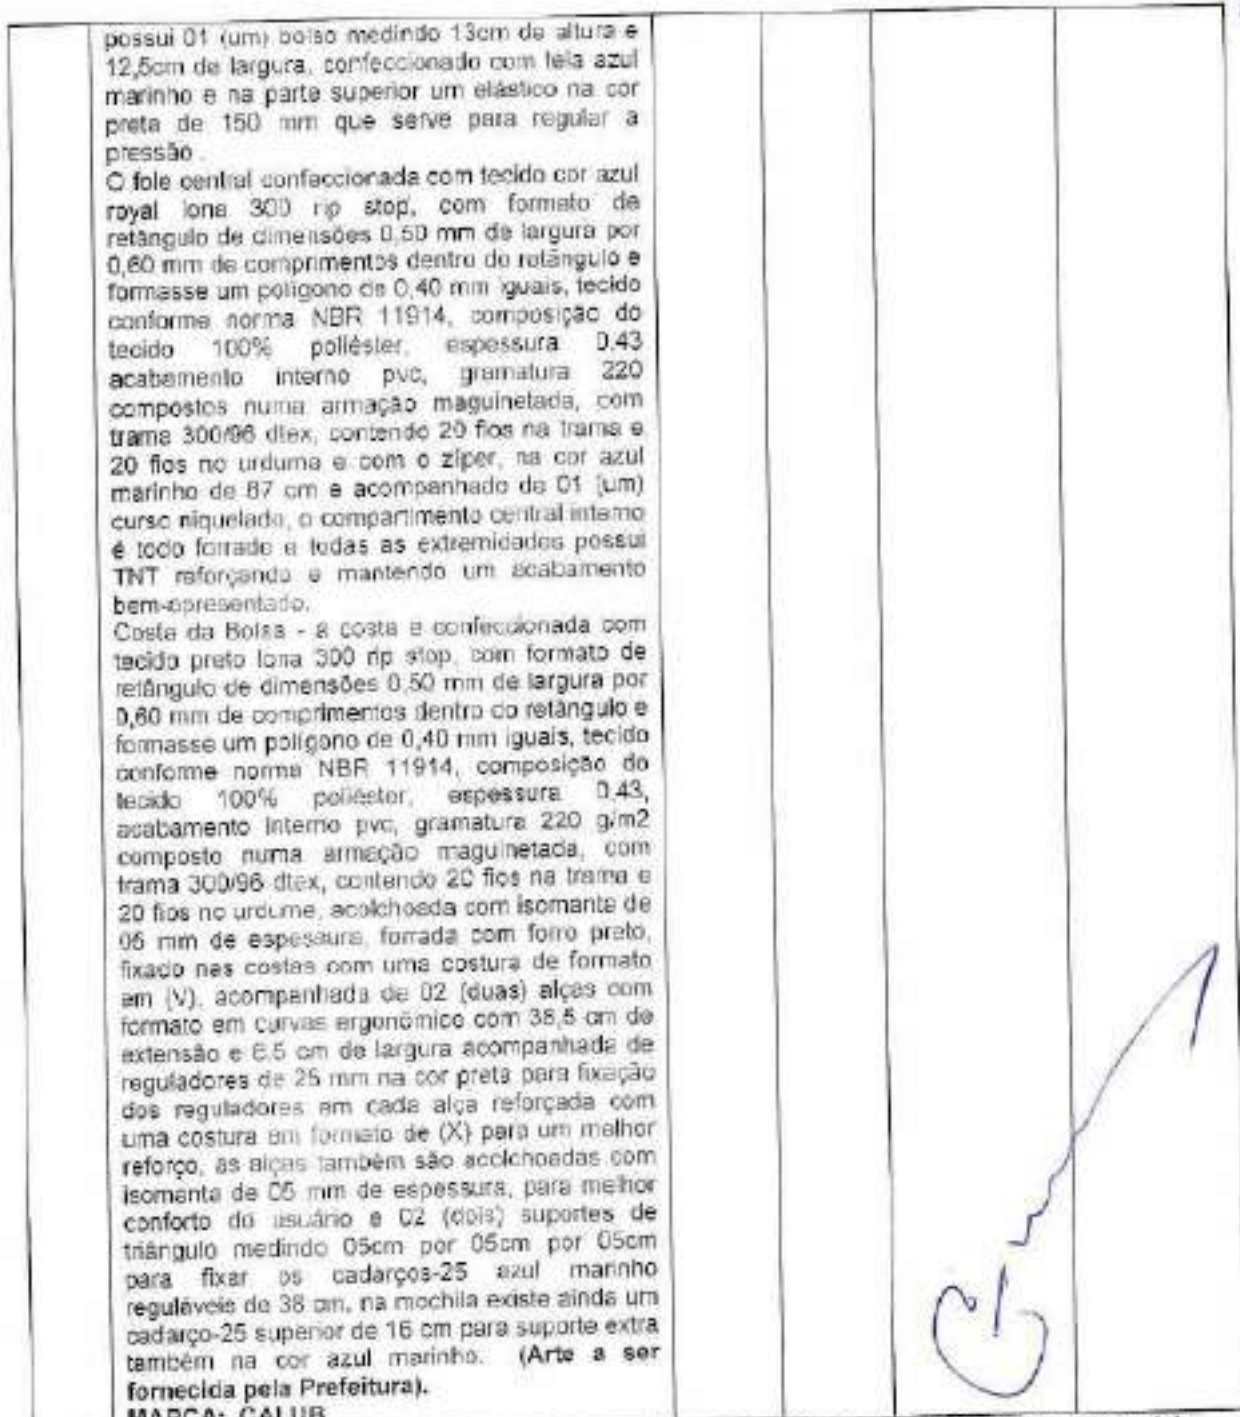 possui 01 (um) bolso medindo 13cm de altura e
12,5cm de largura, confeccionado com tela azul
marinho e na parte superior um elástico na cor
preta de 150 mm que serve para regular a
pressão .
O fole central confeccionada com tecido cor azul
royal lona 300 rip stop, com formato de
retângulo de dimensões 0,50 mm de largura por
0,60 mm de comprimentos dentro do retângulo e
formasse um polígono de 0,40 mm iguais, tecido
conforme norma NBR 11914, composição do
tecido 100% poliéster, espessura 0.43
acabamento interno pvc, gramatura 220
compostos numa armação maguinetada, com
trama 300/96 dtex, contendo 20 fios na trama e
20 fios no urduma e com o zíper, na cor azul
marinho de 67 cm e acompanhado de 01 (um)
curso niquelado, o compartimento central interno
é todo forrado e todas as extremidades possui
TNT reforçando e mantendo um acabamento
bem-apresentado.
Costa da Bolsa - a costa e confeccionada com
tecido preto lona 300 rip stop, com formato de
retângulo de dimensões 0,50 mm de largura por
0,60 mm de comprimentos dentro do retângulo e
formasse um polígono de 0,40 mm iguais, tecido
conforme norma NBR 11914, composição do
tecido 100% poliéster, espessura 0.43,
acabamento interno pvc, gramatura 220 g/m2
composto numa armação maguinetada, com
trama 300/96 dtex, contendo 20 fios na trama e
20 fios no urdume, acolchoada com isomanta de
05 mm de espessura, forrada com forro preto,
fixado nas costas com uma costura de formato
em (V), acompanhada de 02 (duas) alças com
formato em curvas ergonômico com 38,5 cm de
extensão e 6,5 cm de largura acompanhada de
reguladores de 25 mm na cor preta para fixação
dos reguladores em cada alça reforçada com
uma costura em formato de (X) para um melhor
reforço, as alças também são acolchoadas com
isomanta de 05 mm de espessura, para melhor
conforto do usuário e 02 (dois) suportes de
triângulo medindo 05cm por 05cm por 05cm
para fixar os cadarços-25 azul marinho
reguláveis de 38 cm, na mochila existe ainda um
cadarço-25 superior de 16 cm para suporte extra
também na cor azul marinho. (Arte a ser
fornecida pela Prefeitura).
MARCA: CALUB